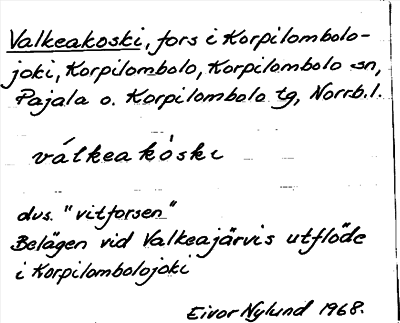 Valkeakoski, fors i Korpilombolo-
joki, Korpilombolo, Korpilombolo sn,
Pajala o. Korpilombolo tg, Norrb.l.
válkeakòski
dvs. "vitforsen"
Belägen vid Valkeajärvis utflöde
i Korpilombolojoki
Eivor Nylund 1968.